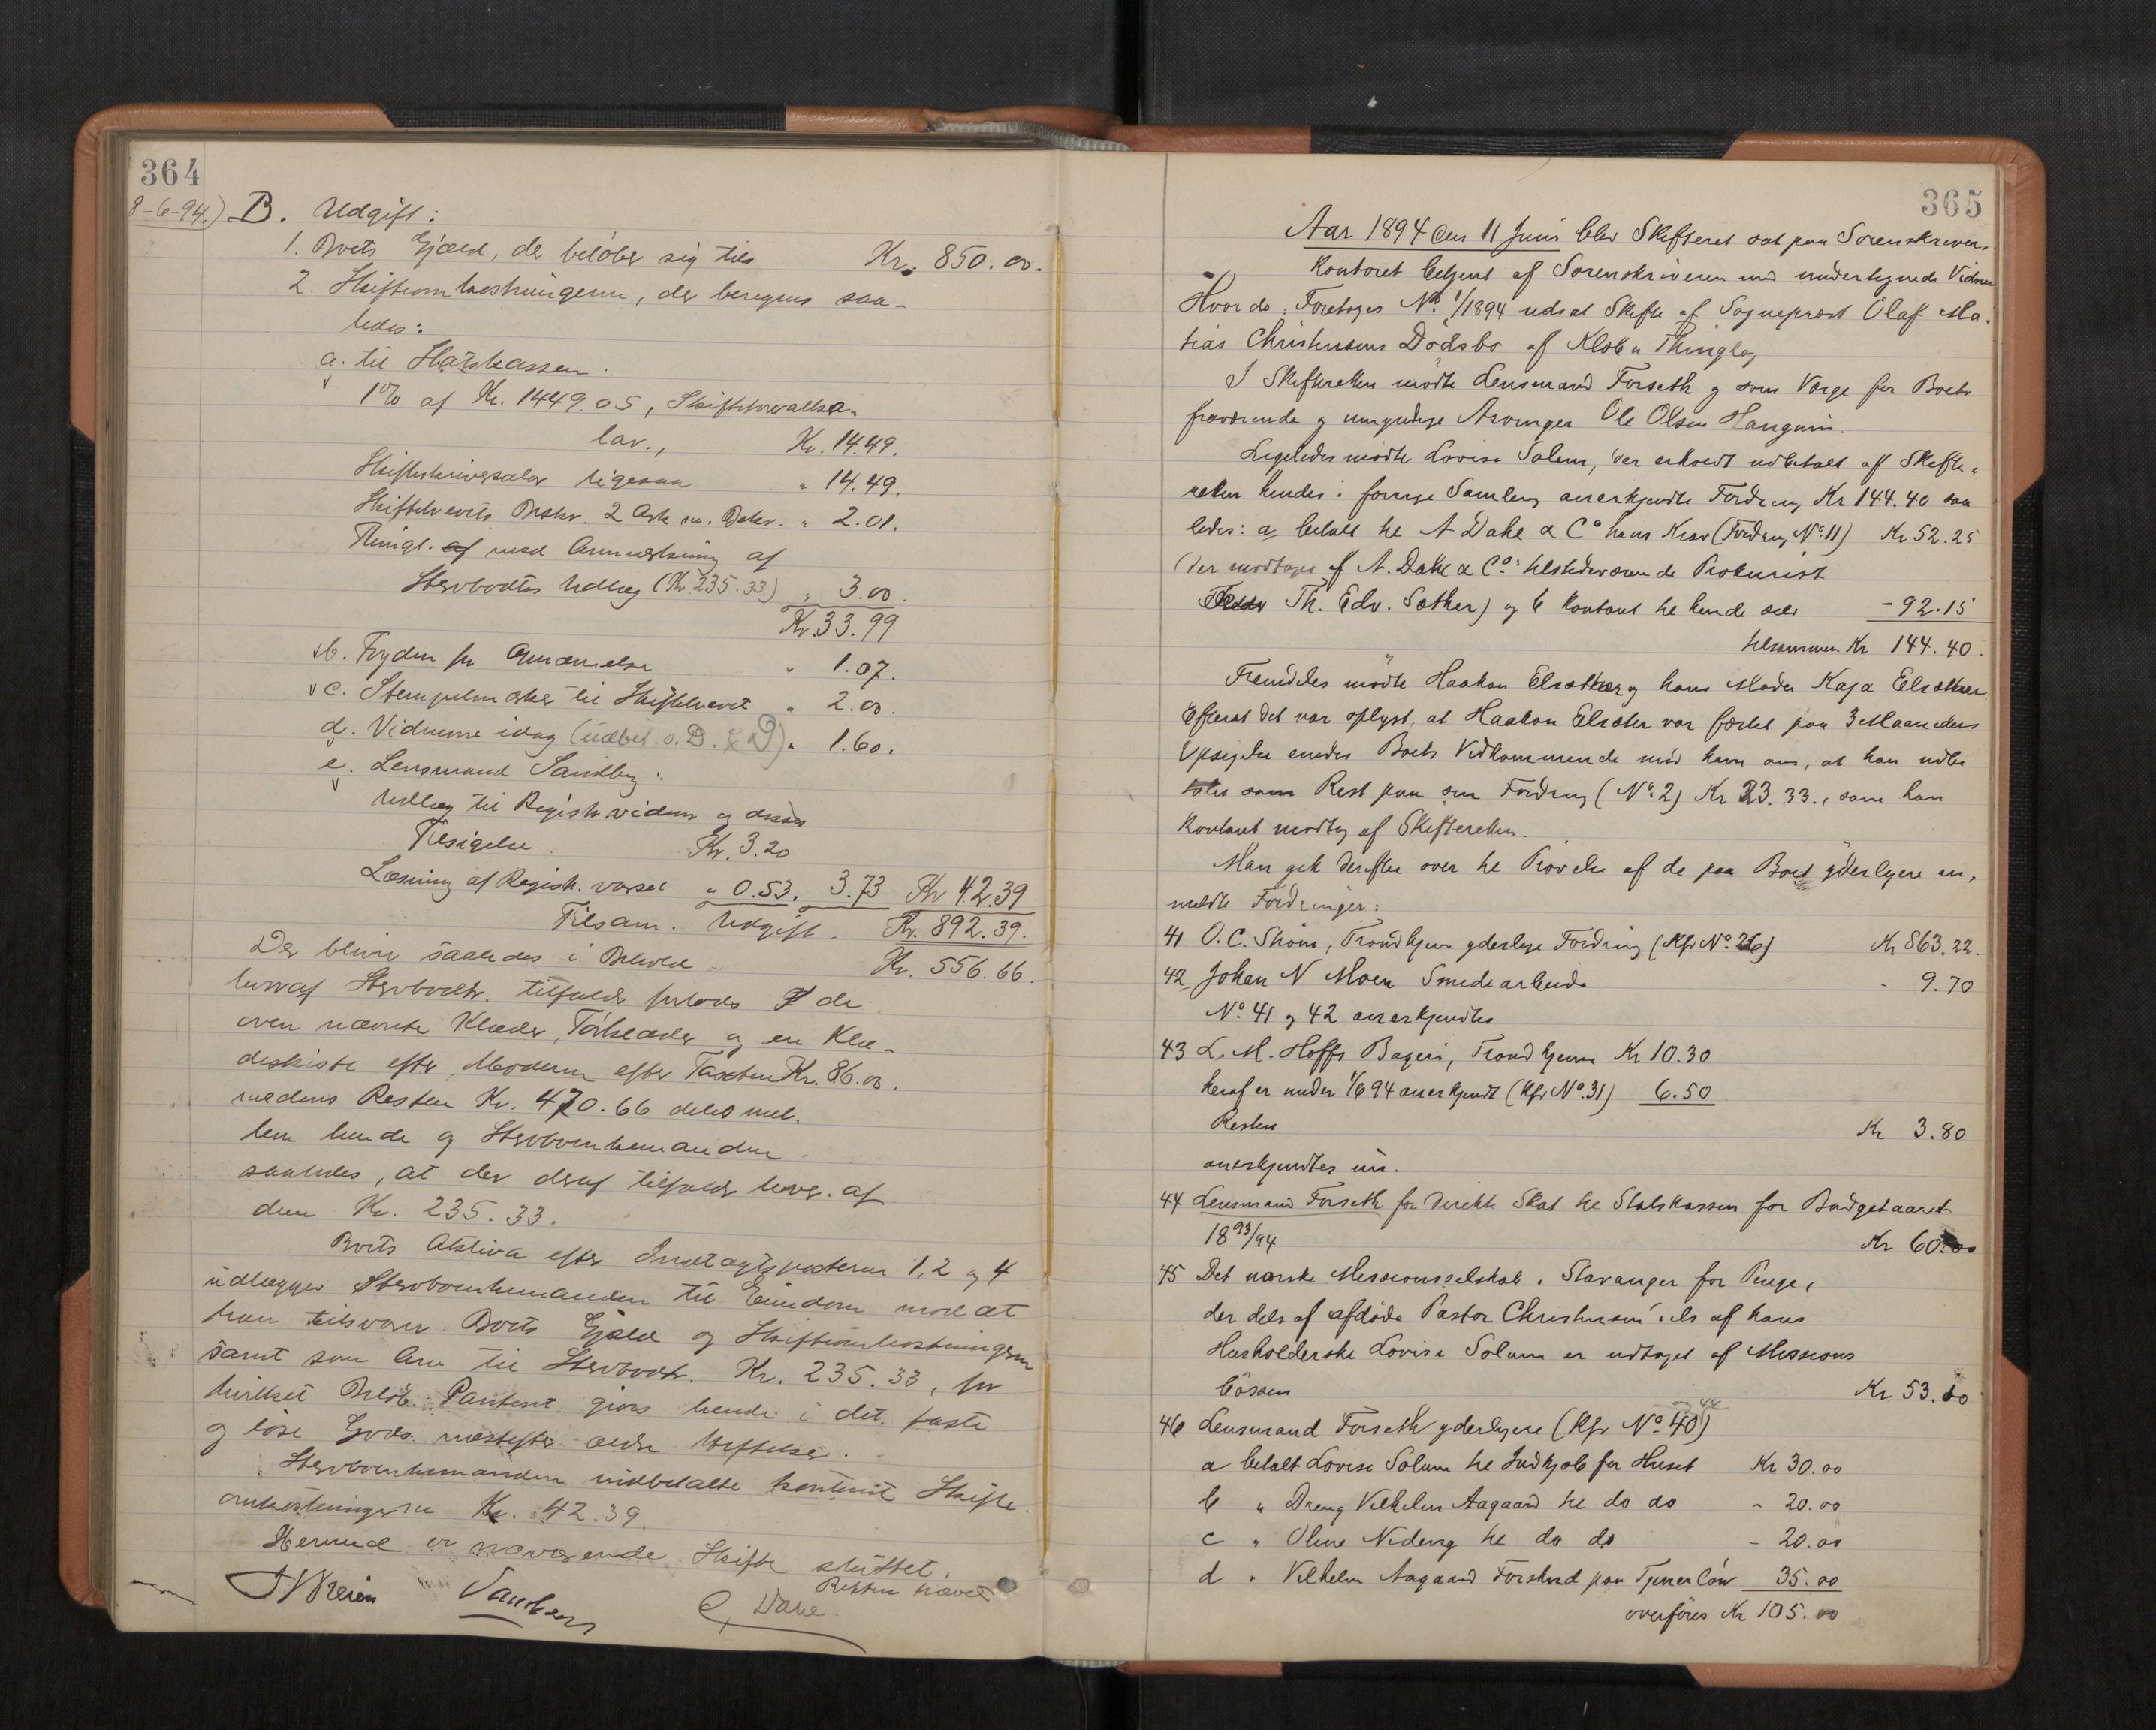 364
8-6-94.) B. Udgift:
1. Boets Gjæld, der beløber sig til Kr. 850.00.
2. Skifteomkostningerne, der beregnes saa-
ledes:
a. til Statskassen:
1% af Kr. 1449.05, Skifteforvaltersa-
lær., Kr. 14.49.
Skifteskriversalær ligesaa " 14.49.
Skiftebrevets Beskr. 2 Ark m. Dekr. " 2.01.
Thingl. af med Anmærkning af
Stervbodtrs Udlæg (Kr. 235.33) " 3.00.
Kr. 33.99
b. Fogden for Opnævnelse " 1.07.
c. Stempelmærker til Skiftebrevet " 2.00.
d. Vidnerne idag (udbet. s. D. " 1.60.
e. Lensmand Sandberg:
Udlæg til Registr. vidner og disses
Tilsigelse Kr. 3.20
Læsning af Registr. varsel " 0.53. 3.73 Kr 42.39
Tilsam. Udgift. Kr. 892.39.
Der bliver saaledes i Behold Kr. 556.66.
hvoraf Stervbodtr. tilfalder forlods de
oven nævnte Klæder, Tørklæder og en Klæ-
deskiste efter Moderen efter Taxten Kr. 86.00.
medens Resten Kr. 470.66 deles mel-
lem hende og Stervboenkemanden
saaledes, at der deraf tilfalder hver af
dem Kr. 235.33.
Boets Aktiva efter Indtægtsposterne 1, 2 og 4
udlægges Stervboenkemanden til Eiendom mod at
han tilsvarer Boets Gjæld og Skifteomkostningerne
samt som Arv til Stervbodtr. Kr. 235.33, for
hvilket Beløb Panteret gives hende i det faste
og løse Gods næstefter ældre Heftelser.
Stervboenkemanden indbetalte kontant Skifte-
omkostningerne Kr. 42.39.
Hermed er nærværende Skifte sluttet.
Retten hævet
Sandberg Dahl
365
Aar 1894 den 11 Juni blev Skifteret sat paa Sorenskriver-
kontoret betjent af Sorenskriveren med undertegnede Vidner
Hvor da: Foretoges No. 1/1894 udsat Skifte af Sogneprest Olaf Ma-
tias Christensens Dødsbo af Klæbu Thinglag
I Skifteretten mødte Lensmand Forseth og som Værge for Boets
fraværende og umyndige Arvinger Ole Olsen Haugum.
Ligeledes mødte Lovise Solem, der erholdt udbetalt af Skifte-
retten hendes i forrige Samling anerkjendte Fordring Kr 144.40 saa
ledes: a, betalt til A Dahl & Co hans Krav (Fordring No. 11) Kr 52.25
(der modtoges af A. Dahl & Co: tilstedeværende Prokurist
Th. Edv. Sæther) og b kontant til hende selv - 92.15
tilsammen Kr 144.40.
Fremdeles mødte Haakon Elsæther og hans Moder Kaja Elsæther.
Efterat det var oplyst, at Haakon Elsæter var fæstet paa 3 Maaneders
Opsigelse enedes Boets Vedkommende med ham om, at han udbe
tales som Rest paa sin Fordring (No. 2) Kr 23.33., som han
kontant modtog af Skifteretten.
Man gik derefter over til Prøvelse af de paa Boet yderligere an-
meldte Fordringer:
41 O. C. Strøm, Trondhjem yderlige Fordring (Kfr No. 26) Kr 863.22.
42 Johan N Moen Smedearbeide - 9.70
No. 41 og 42 anerkjendtes
43 L. M. Hoffs Bageri, Trondhjem Kr 10.30
heraf er under 1/6 94 anerkjendt (kfr No. 31) 6.50
Resten Kr 3.80
anerkjendtes nu.
44 Lensmand Forseth for direkte Skat til Statskassen for Budgetaaret
1893/94 Kr 60.00
45 Det norske Missionsselskab i Stavanger for Penge,
der dels af afdøde Pastor Christensen dels af hans
Husholderske Lovise Solum er udtaget af Missions
bøssen Kr 53.00
og 44
46 Lensmand Forseth yderligere (Kfr No. 40)
a betalt Lovise Solum til Indkjøb for Huset Kr 30.00
b " Dreng Vilhelm Aagaard til do do - 20.00
c " Oline Nideng til do do - 20.00
d " Vilhelm Aagaard Forskud paa Tjenerløn 35.00
overføres Kr 105.00